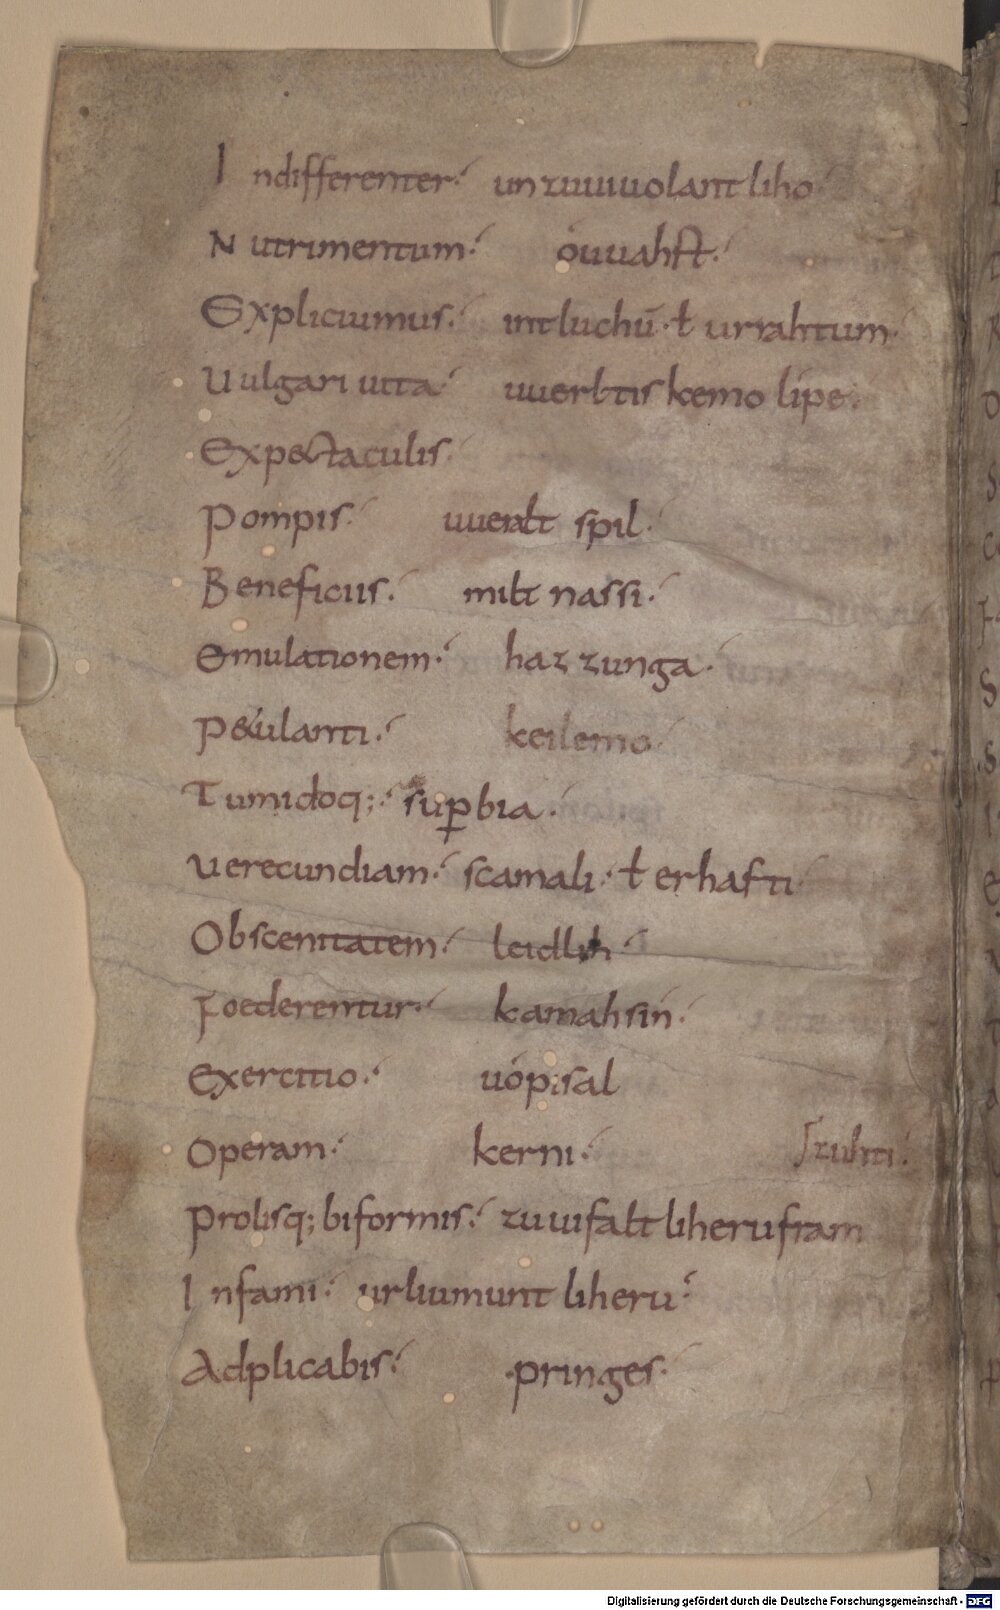 Indifferenter. unzuuiuuolantliho
Nutrimentum. óuuahst.
Expliciumus. intluchū. ł urrahtum.
Uulgari uita. uuerbtis kemo lipe.
Expectaculis.
Pompis. uueralt spil.
Beneficiis. milt nassi.
Emulationem. haz zunga.
P&ulanti. keilemo.
Tumidoq; suꝑbia.
Uerecundiam. scamali. ł erhafti
Obscenitatem. leidlih.
Foederentur. kamahsin.
Exercitio. uópisal
Operam. kerni.
Prolisq; biformis. zuuisalt liheru fram szuhti.
Infami. urliumunt liherū.
Adplicabis. pringes.
Digitalisierung gefördert durch die Deutsche Forschungsgemeinschaft - DFG